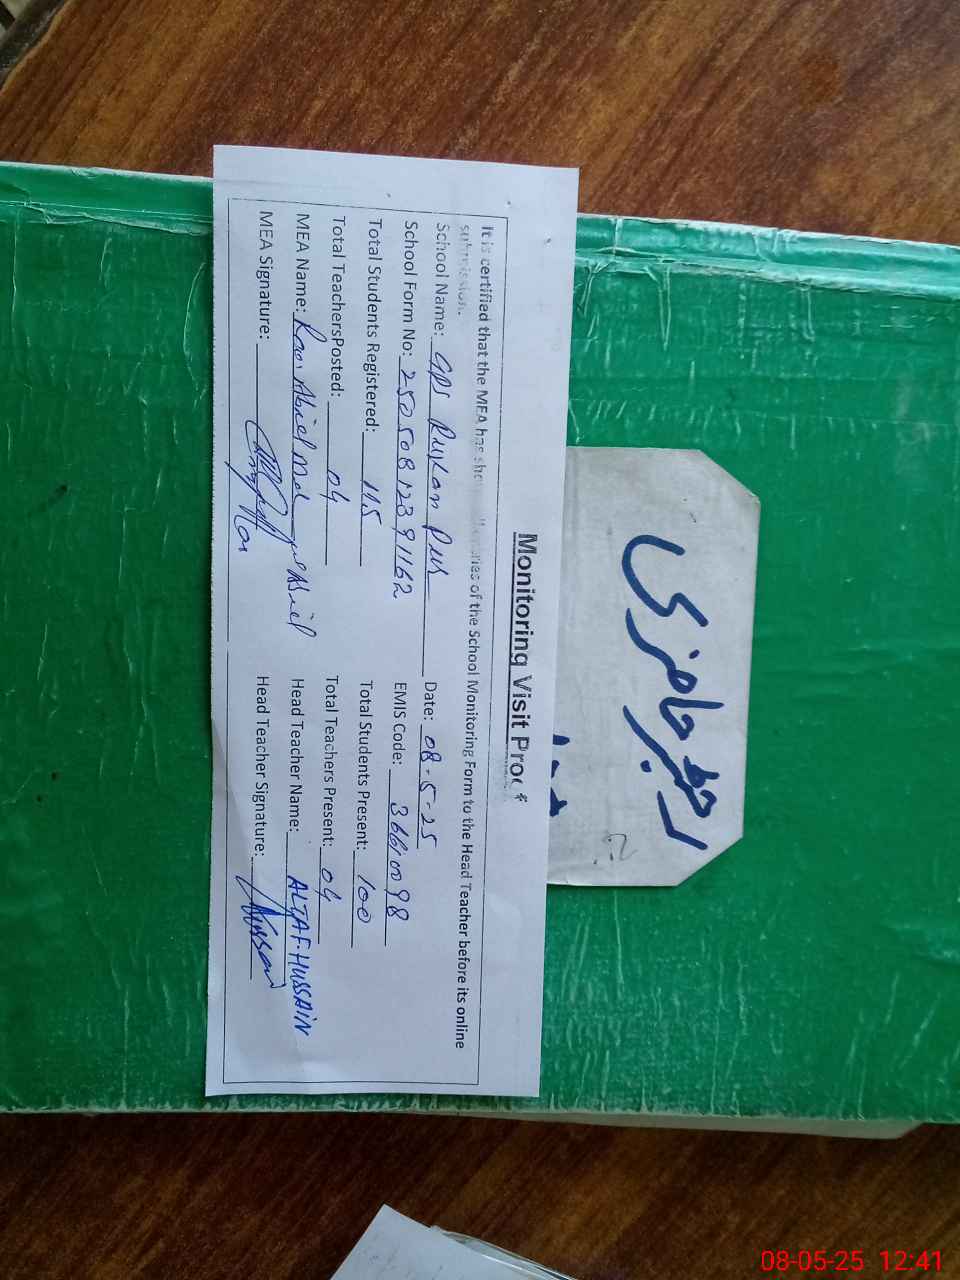 Monitoring Visit Proof
It is certified that the MEA has shown all entries of the School Monitoring Form to the Head Teacher before its online
submission.
School Name: GPS Rukan Pur Date: 08-5-25
School Form No: 25050812391162 EMIS Code: 36610098
Total Students Registered: 115 Total Students Present: 100
Total TeachersPosted: 04 Total Teachers Present: 04
MEA Name: Rao. Head Teacher Name: ALTAF.HUSSAIN
MEA Signature: Head Teacher Signature:
رجسٹر حاضری
08-05-25 12:41